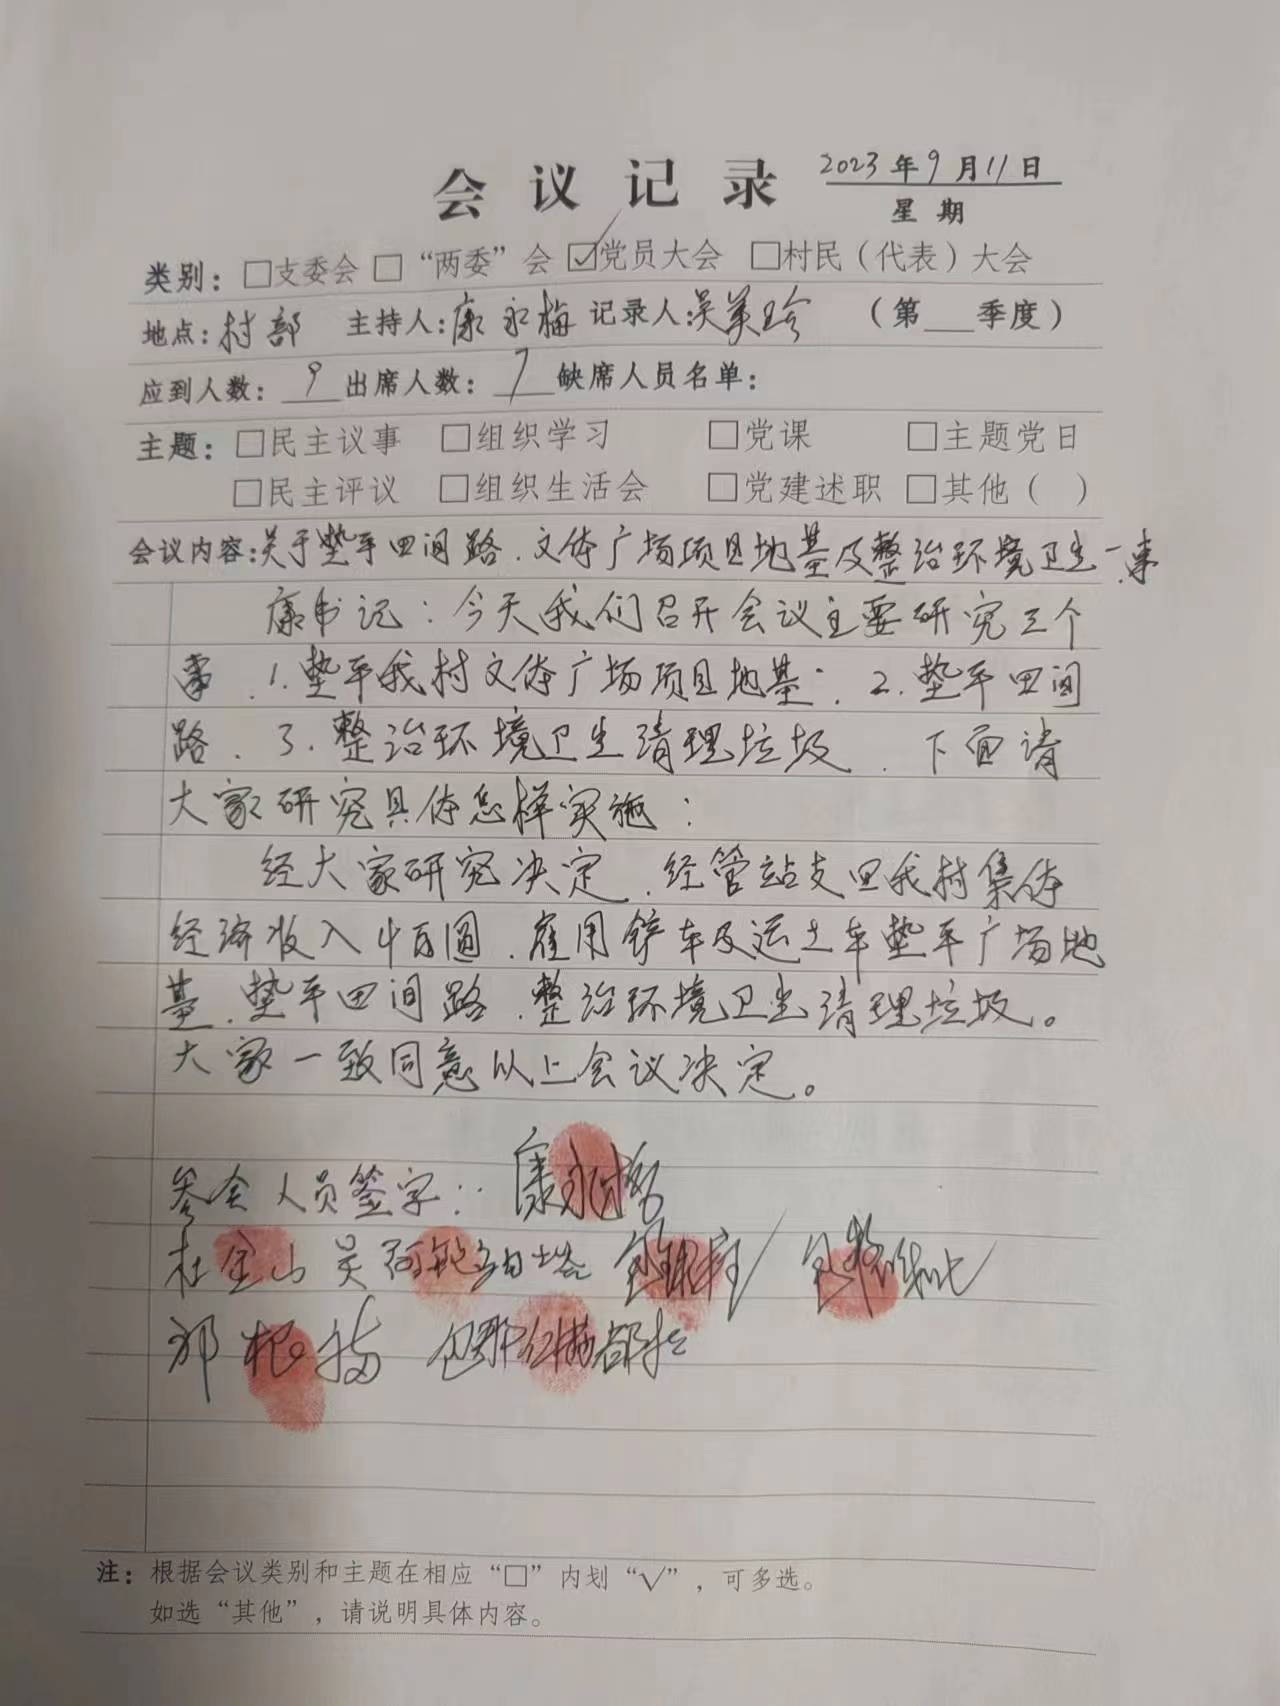 会议记录 2023年9月11日
星期
类别：□支委会 □“两委”会 ☑党员大会 □村民（代表）大会
地点：村部 主持人：康永梅 记录人：吴美珍 （第___季度）
应到人数：9 出席人数：7 缺席人员名单：
主题：□民主议事 □组织学习 □党课 □主题党日
□民主评议 □组织生活会 □党建述职 □其他（ ）
会议内容：关于垫平田间路、文体广场项目地基及整治环境卫生一事
康书记：今天我们召开会议主要研究三个
事、1.垫平我村文体广场项目地基；2.垫平田间
路、3.整治环境卫生清理垃圾、下面请
大家研究具体怎样实施：
经大家研究决定、经管站支回我村集体
经济收入 百圆、雇用铲车及运土车垫平广场地
基、垫平田间路、整治环境卫生清理垃圾。
大家一致同意以上会议决定。
参会人员签字：康永梅
杜金山 吴阿
邓根 包
注：根据会议类别和主题在相应“□”内划“√”，可多选。
如选“其他”，请说明具体内容。